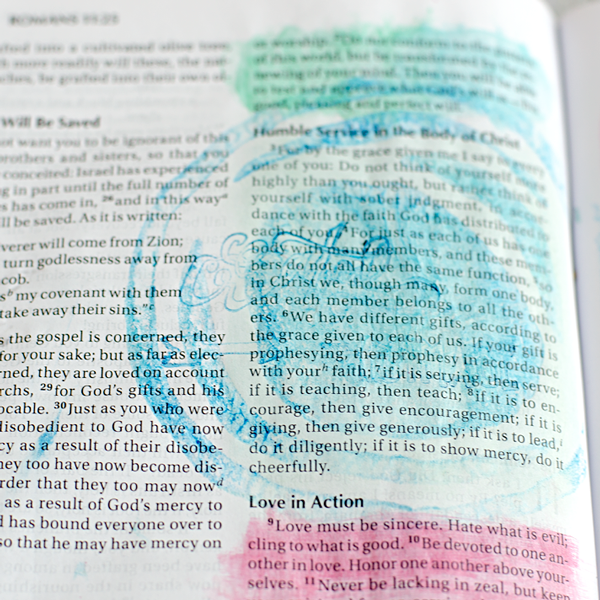 ROMANS 11:25
more readily will these, the nat-
be grafted into their own ol-
Will Be Saved
not want you to be ignorant of this
brothers and sisters, so that you
conceited: Israel has experienced
in part until the full number of
has come in, 26 and in this way a
ll be saved. As it is written:
verer will come from Zion;
turn godlessness away from
cob.
b my covenant with them
take away their sins." c
s the gospel is concerned, they
for your sake; but as far as elec-
rned, they are loved on account
rchs, 29 for God's gifts and his
ocable. 30 Just as you who were
disobedient to God have now
cy as a result of their disobe-
hey too have now become dis-
rder that they too may now d
as a result of God's mercy to
d has bound everyone over to
so that he may have mercy on
of this world, but be transformed by the re-
newing of your mind. Then you will be able
to test and approve what God's will is—his
good, pleasing and perfect will.
Humble Service in the Body of Christ
3 For by the grace given me I say to every
one of you: Do not think of yourself more
highly than you ought, but rather think of
yourself with sober judgment, in accor-
dance with the faith God has distributed to
each of you. 4 For just as each of us has one
body with many members, and these mem-
bers do not all have the same function, 5 so
in Christ we, though many, form one body,
and each member belongs to all the oth-
ers. 6 We have different gifts, according to
the grace given to each of us. If your gift is
prophesying, then prophesy in accordance
with your h faith; 7 if it is serving, then serve;
if it is teaching, then teach; 8 if it is to en-
courage, then give encouragement; if it is
giving, then give generously; if it is to lead, i
do it diligently; if it is to show mercy, do it
cheerfully.
Love in Action
9 Love must be sincere. Hate what is evil;
cling to what is good. 10 Be devoted to one an-
other in love. Honor one another above your-
selves. 11 Never be lacking in zeal, but keep